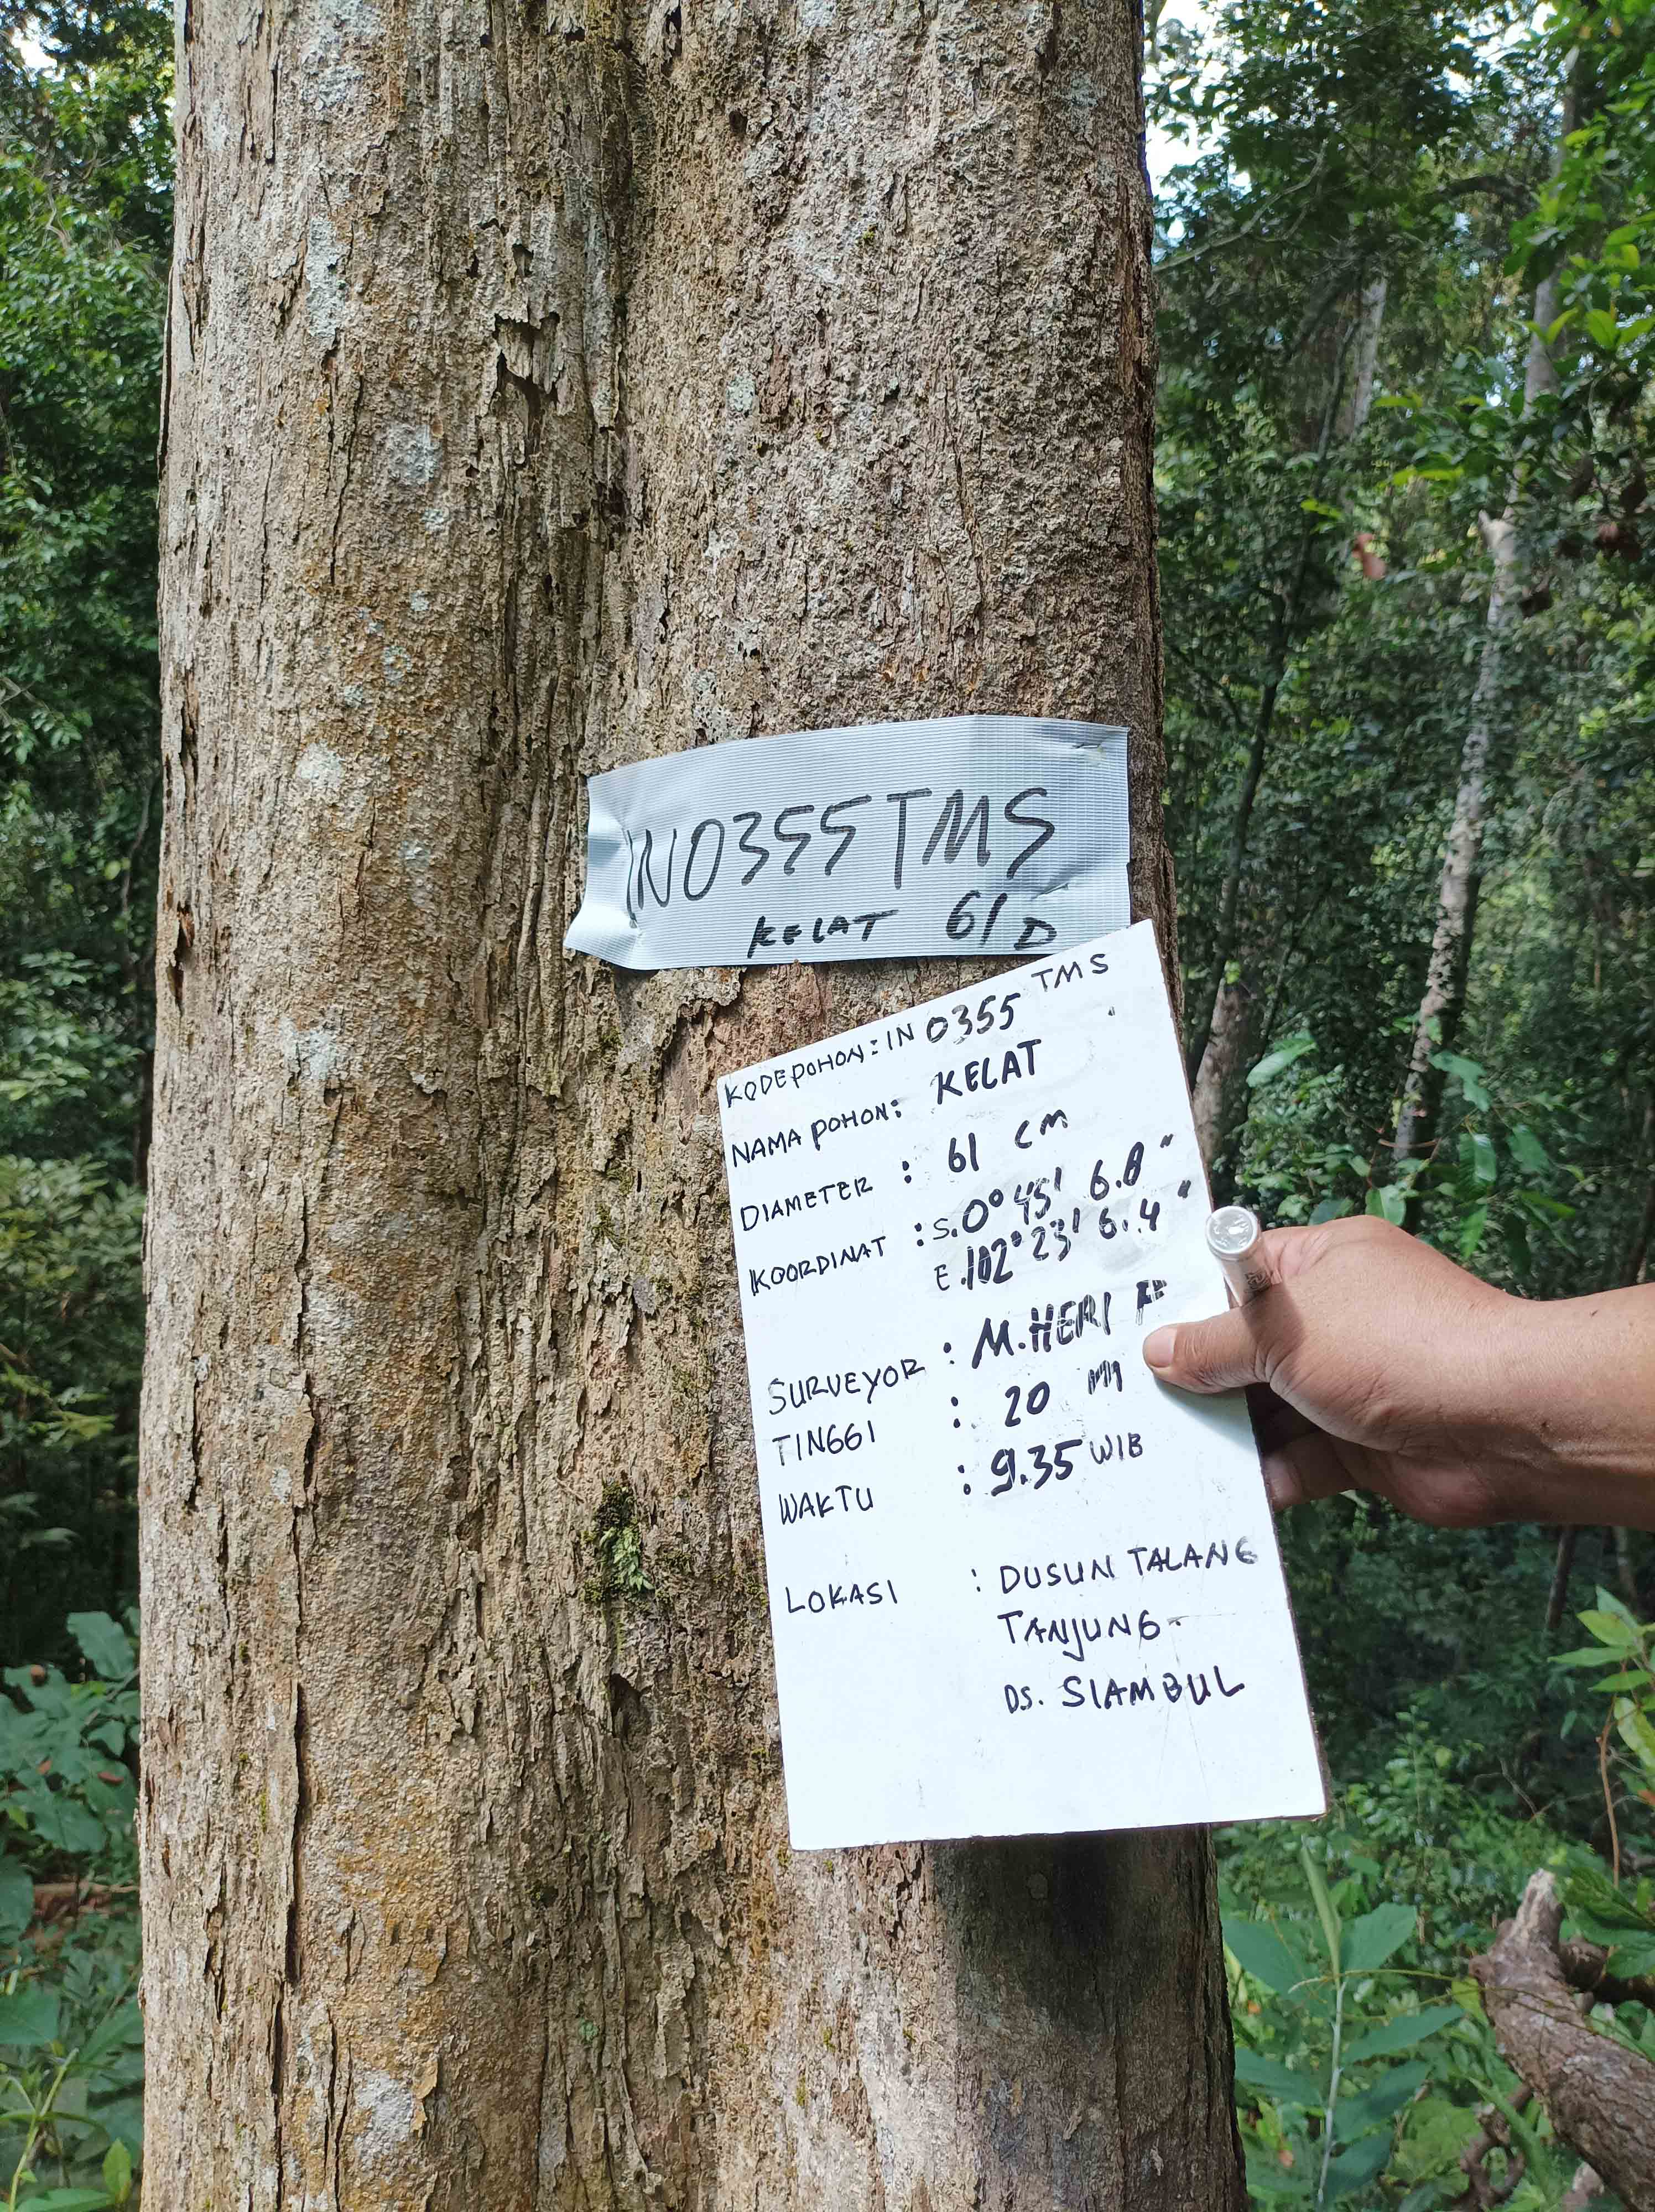 IN0355TMS
KELAT 61 D
KODE POHON : IN 0355 TMS
NAMA POHON : KELAT
DIAMETER : 61 CM
KOORDINAT : S. 0° 45' 6.8"
E. 102° 23' 6.4"
SURVEYOR : M. HERI
TINGGI : 20 M
WAKTU : 9.35 WIB
LOKASI : DUSUN TALANG
TANJUNG
DS. SIAMBUL